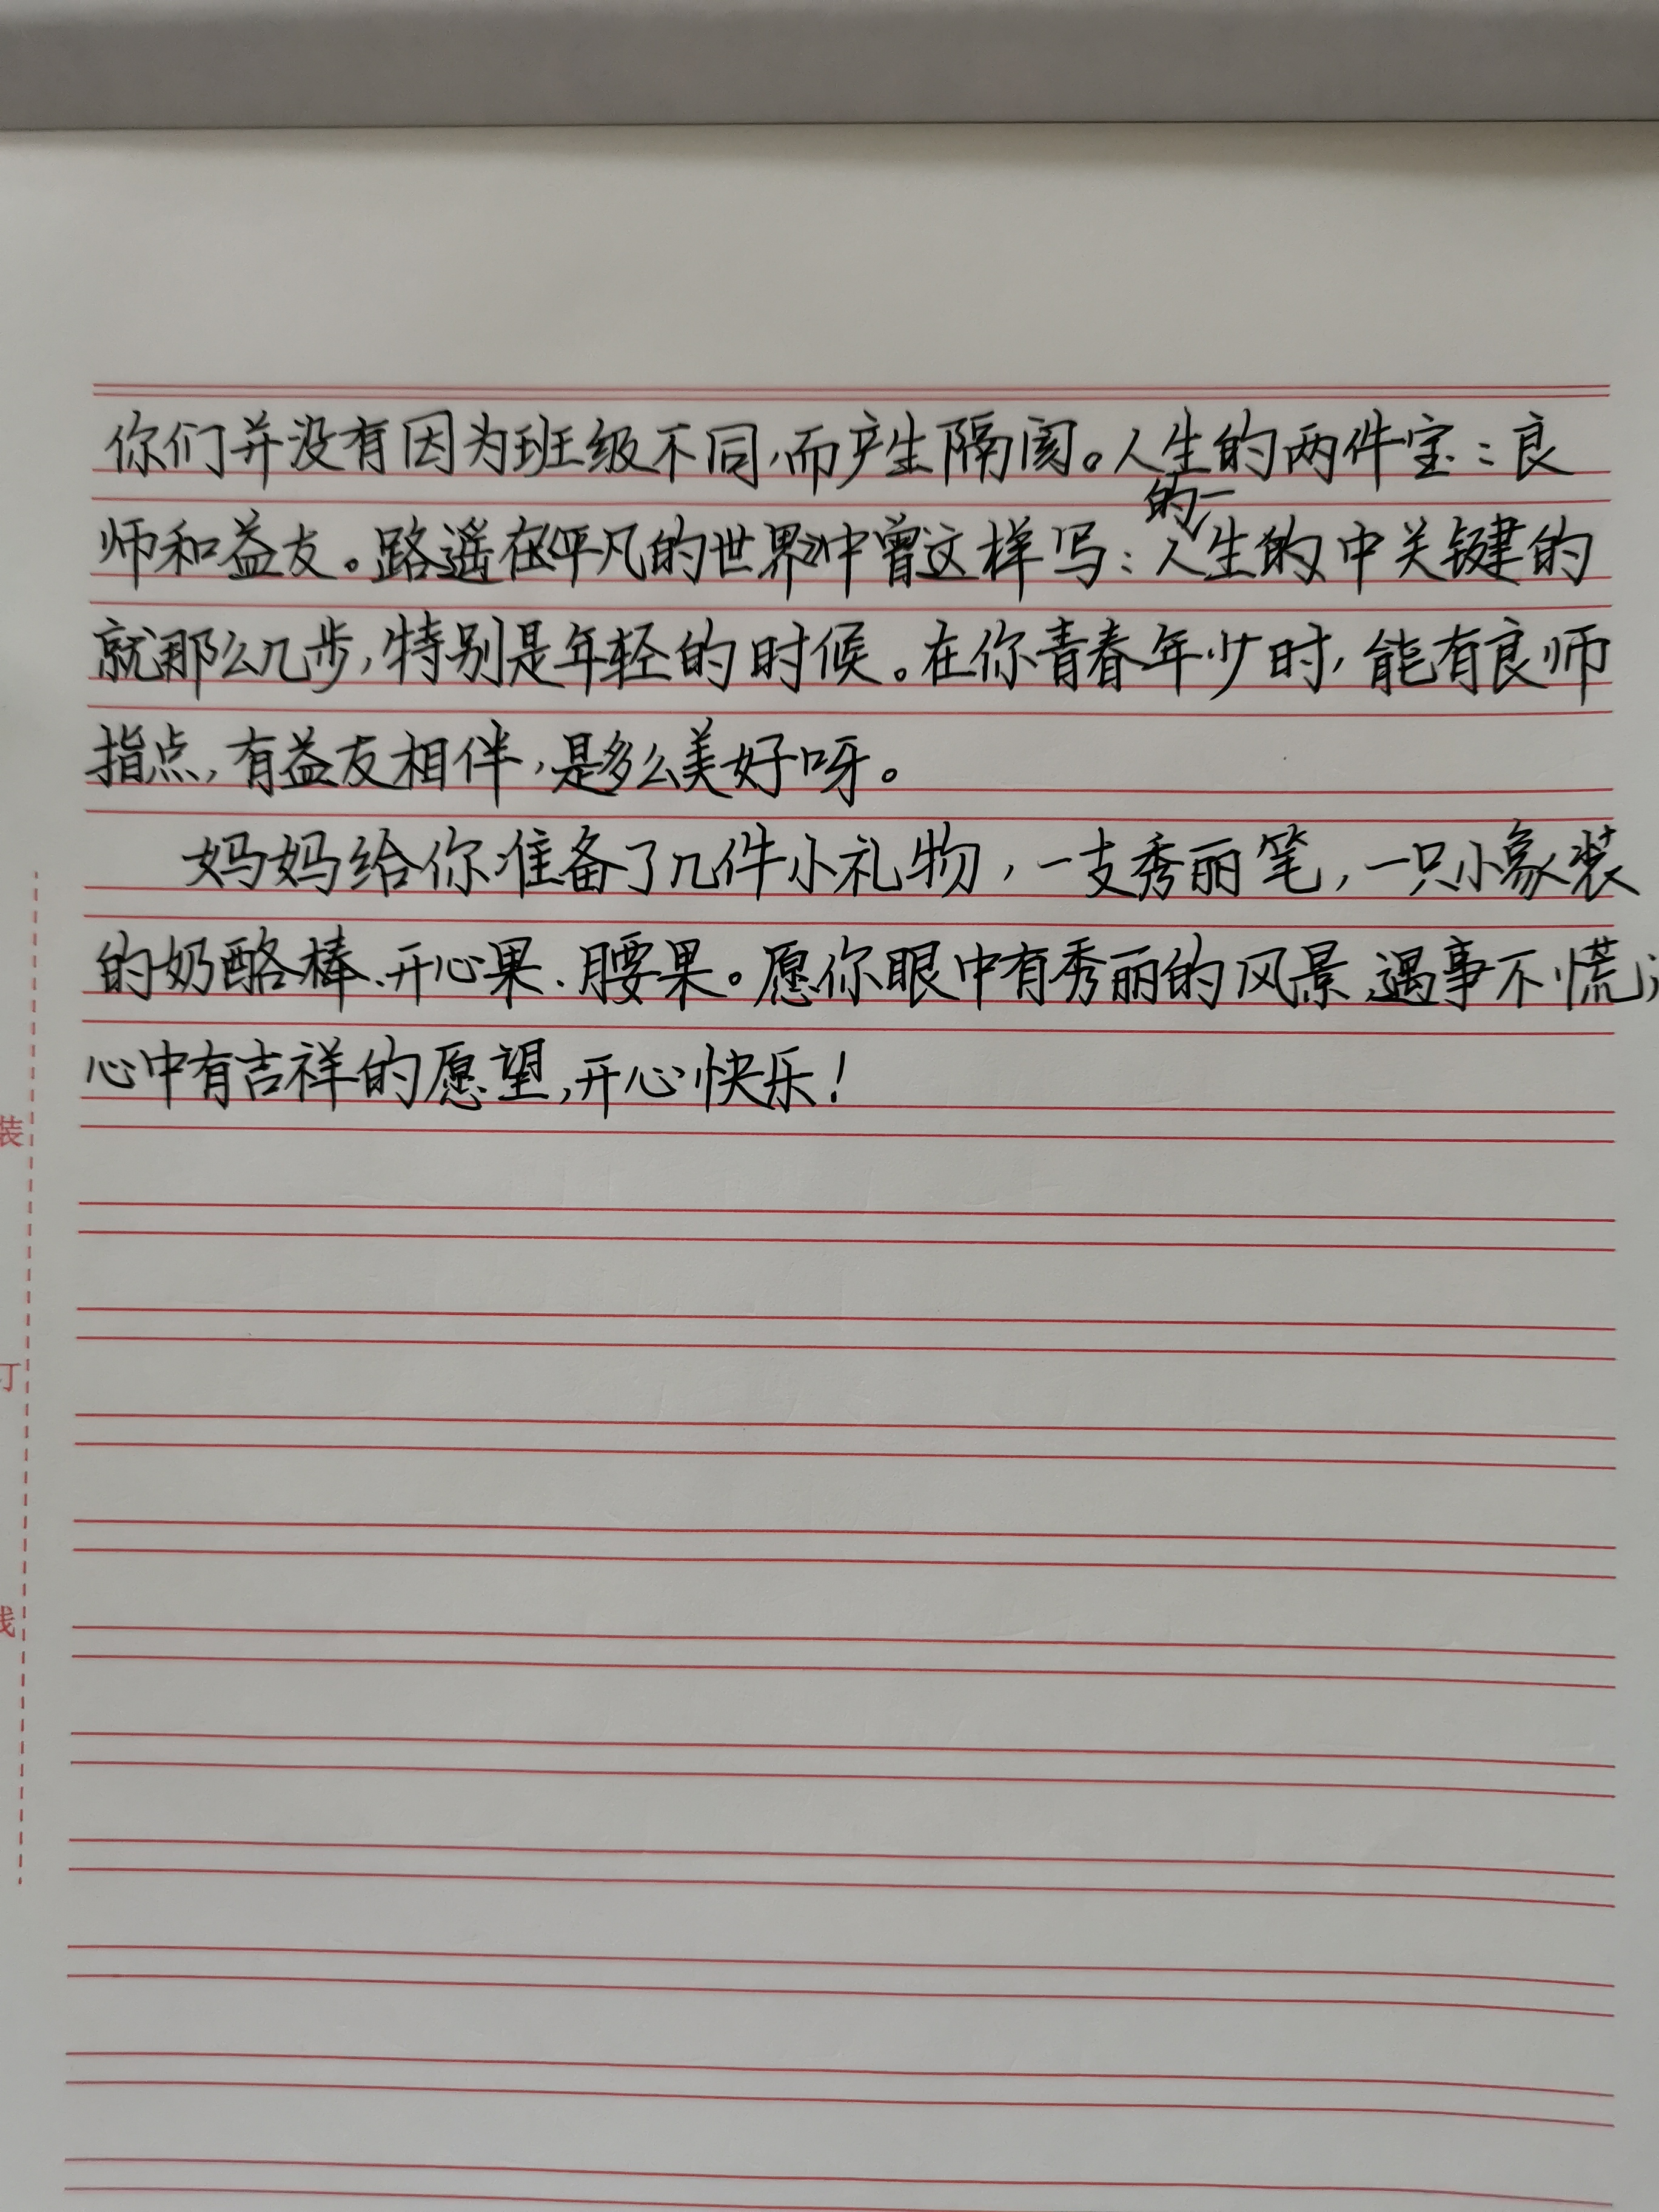 你们并没有因为班级不同,而产生隔阂。人生的两件宝:良
的一
师和益友。路遥在《平凡的世界》中曾这样写:人生的中关键的
就那么几步,特别是年轻的时候。在你青春年少时,能有良师
指点,有益友相伴,是多么美好呀。
妈妈给你准备了几件小礼物,一支秀丽笔,一只小象装
的奶酪棒、开心果、腰果。愿你眼中有秀丽的风景,遇事不慌;
心中有吉祥的愿望,开心快乐!
装
订
线